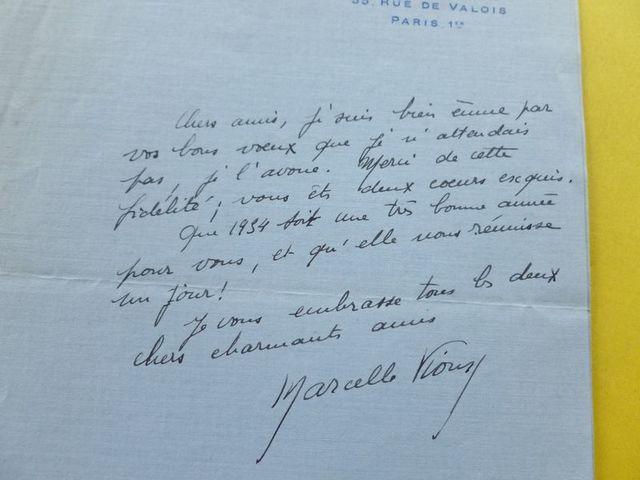 35. RUE DE VALOIS
PARIS. 1ER
Chers amis, je suis bien émue par
vos bons voeux que je n'attendais
pas, je l'avoue. Merci de cette
fidélité, vous êts deux coeurs exquis.
Que 1934 soit une très bonne année
pour vous, et qu'elle nous réunisse
un jour!
Je vous embrasse tous les deux
chers charmants amis
Marcelle Vioux